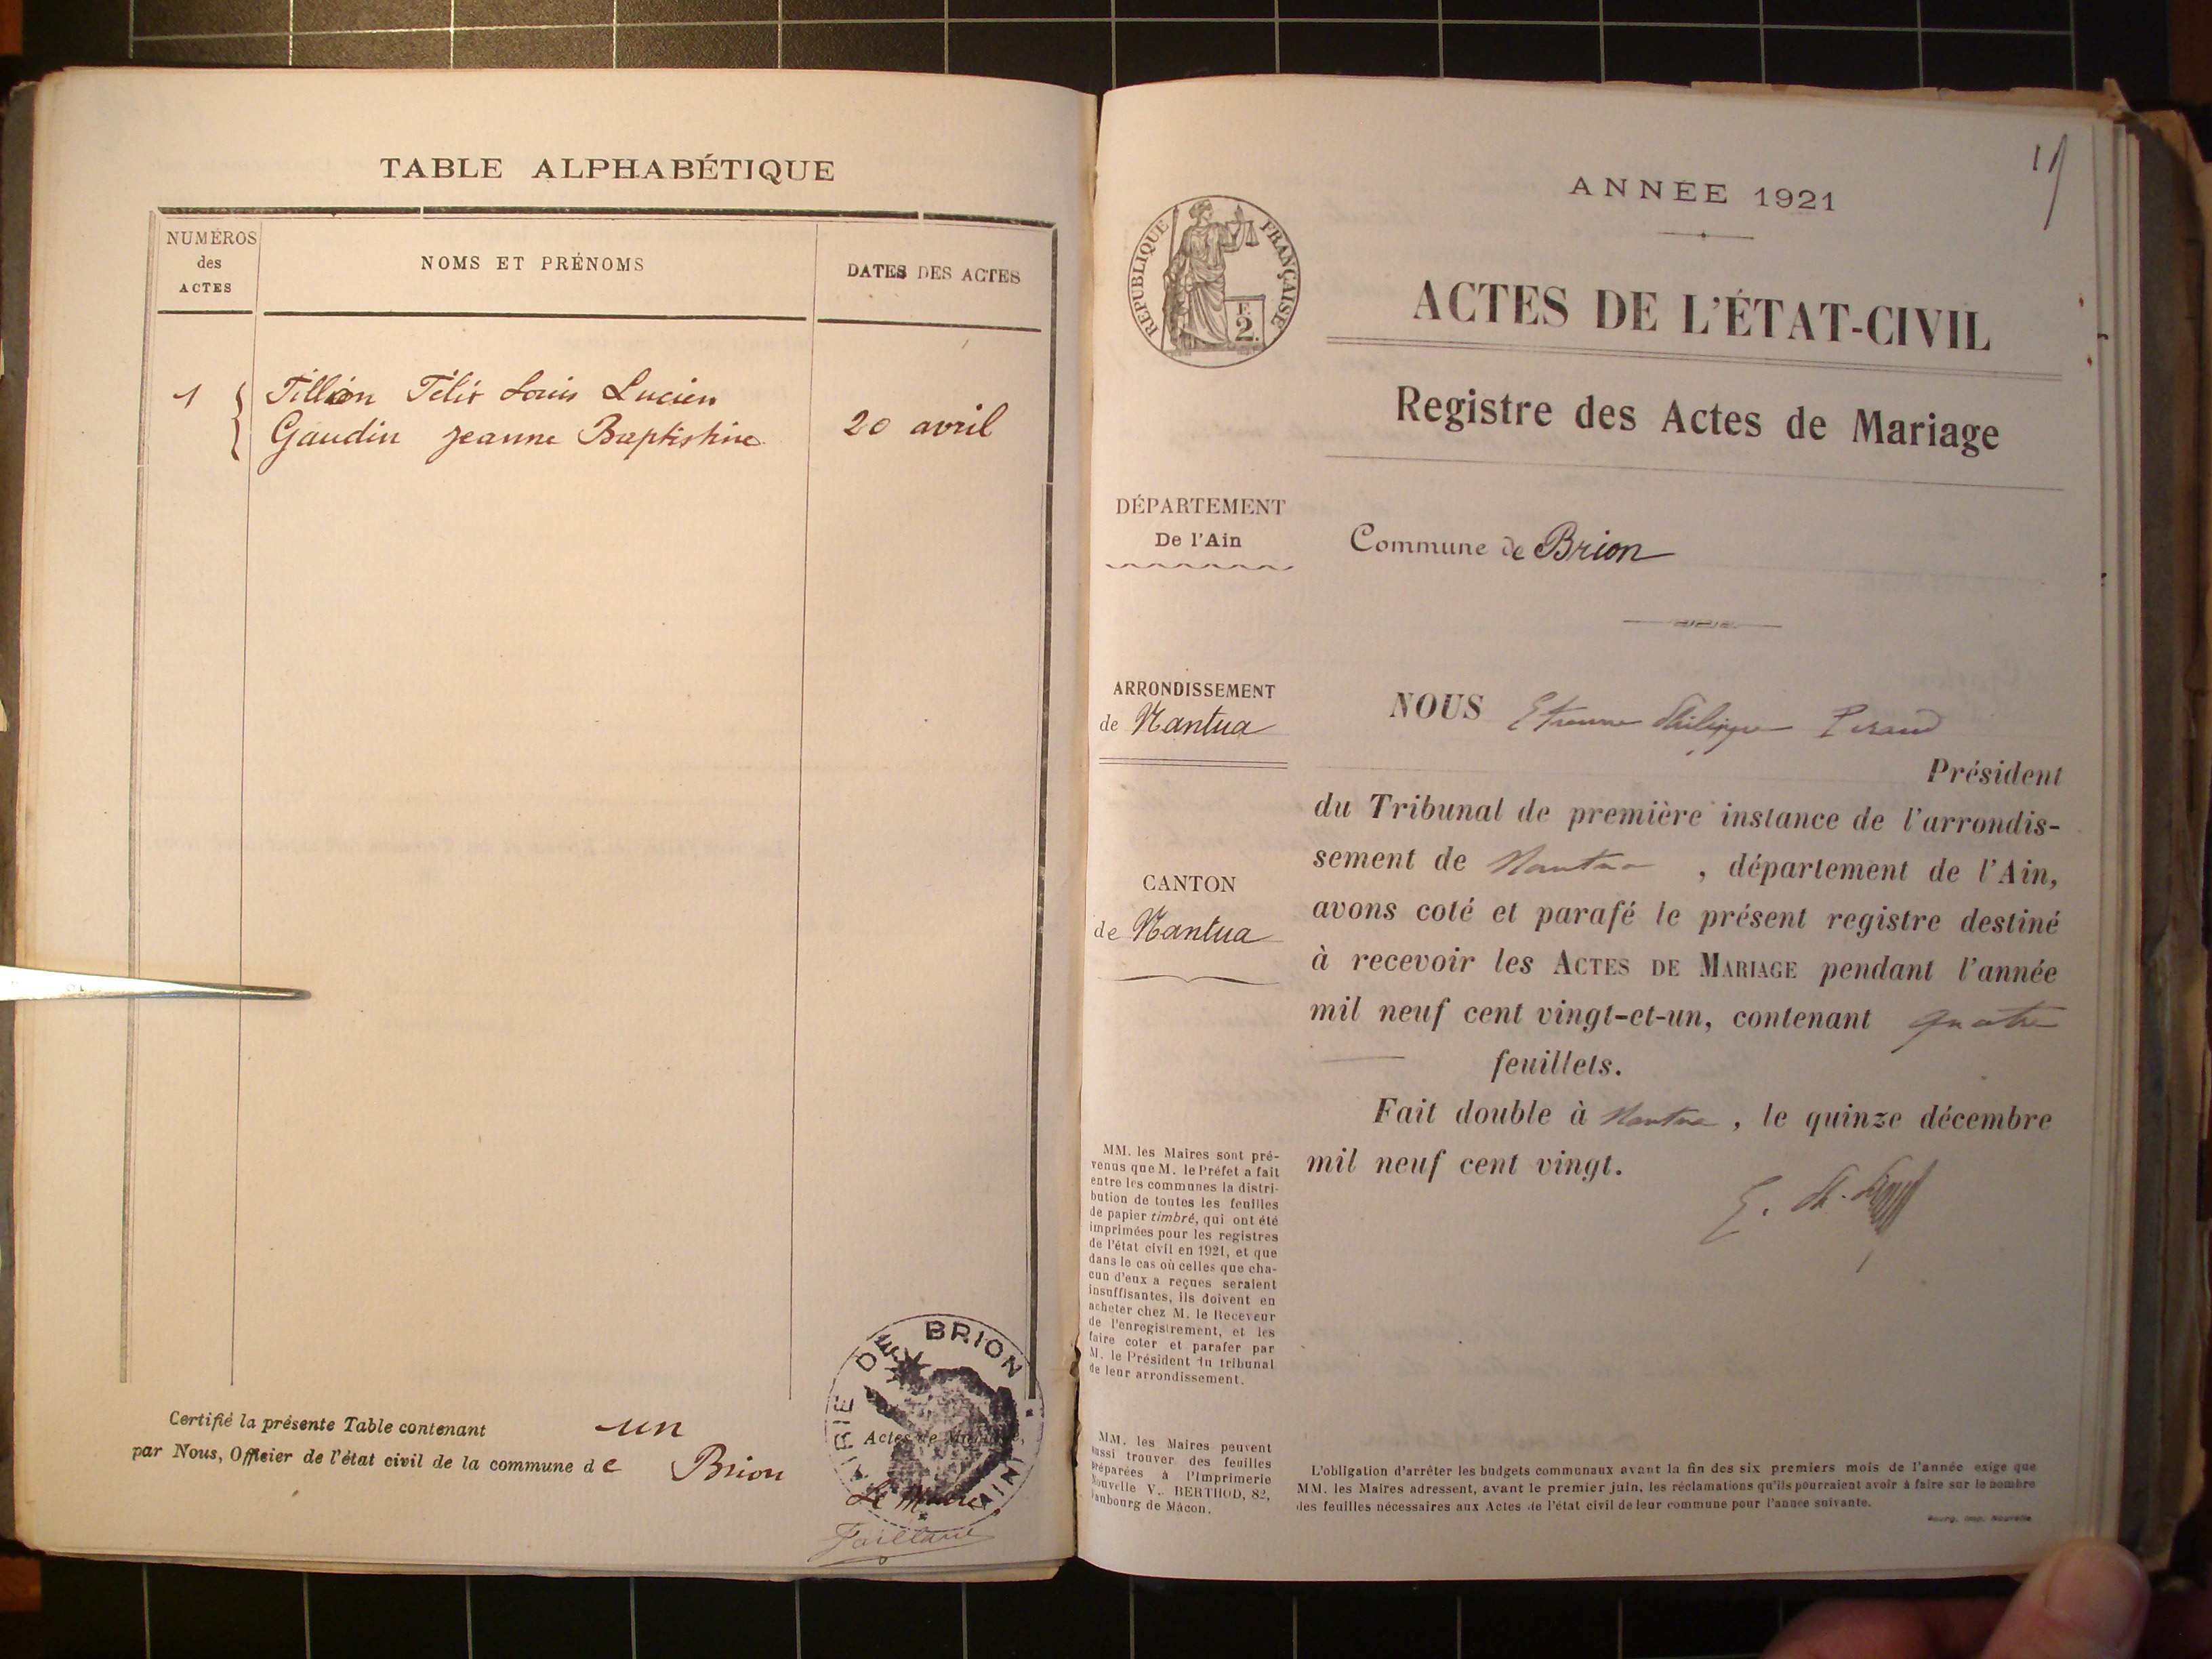 TABLE ALPHABÉTIQUE
NUMÉROS
des
ACTES
NOMS ET PRÉNOMS
DATES DES ACTES
1
Tillion Félix Louis Lucien
Gaudin Jeanne Baptistine
20 avril
Certifié la présente Table contenant un Actes de Mariage,
par Nous, Officier de l'état civil de la commune de Brion
Le Maire
MAIRIE DE BRION
AIN
11
ANNÉE 1921
RÉPUBLIQUE FRANÇAISE
F.
2.
ACTES DE L'ÉTAT-CIVIL
Registre des Actes de Mariage
DÉPARTEMENT
De l'Ain
Commune de Brion
ARRONDISSEMENT
de Nantua
CANTON
de Nantua
NOUS Etienne Philippe
Président
du Tribunal de première instance de l'arrondis-
sement de Nantua, département de l'Ain,
avons coté et parafé le présent registre destiné
à recevoir les ACTES DE MARIAGE pendant l'année
mil neuf cent vingt-et-un, contenant quatre
feuillets.
Fait double à Nantua, le quinze décembre
mil neuf cent vingt.
MM. les Maires sont pré-
venus que M. le Préfet a fait
entre les communes la distri-
bution de toutes les feuilles
de papier timbré, qui ont été
imprimées pour les registres
de l'état civil en 1921, et que
dans le cas où celles que cha-
cun d'eux a reçues seraient
insuffisantes, ils doivent en
acheter chez M. le Receveur
de l'enregistrement, et les
faire coter et parafer par
M. le Président du tribunal
de leur arrondissement.
MM. les Maires peuvent
aussi trouver des feuilles
préparées à l'Imprimerie
Nouvelle V. BERTHOD, 82,
faubourg de Mâcon.
L'obligation d'arrêter les budgets communaux avant la fin des six premiers mois de l'année exige que
MM. les Maires adressent, avant le premier juin, les réclamations qu'ils pourraient avoir à faire sur le nombre
des feuilles nécessaires aux Actes de l'état civil de leur commune pour l'année suivante.
Bourg, Imp. Nouvelle